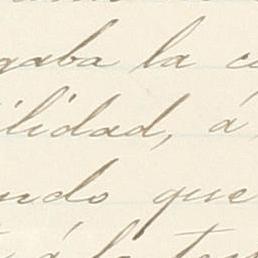 gaba la c
ilidad, á
ndo que
á la